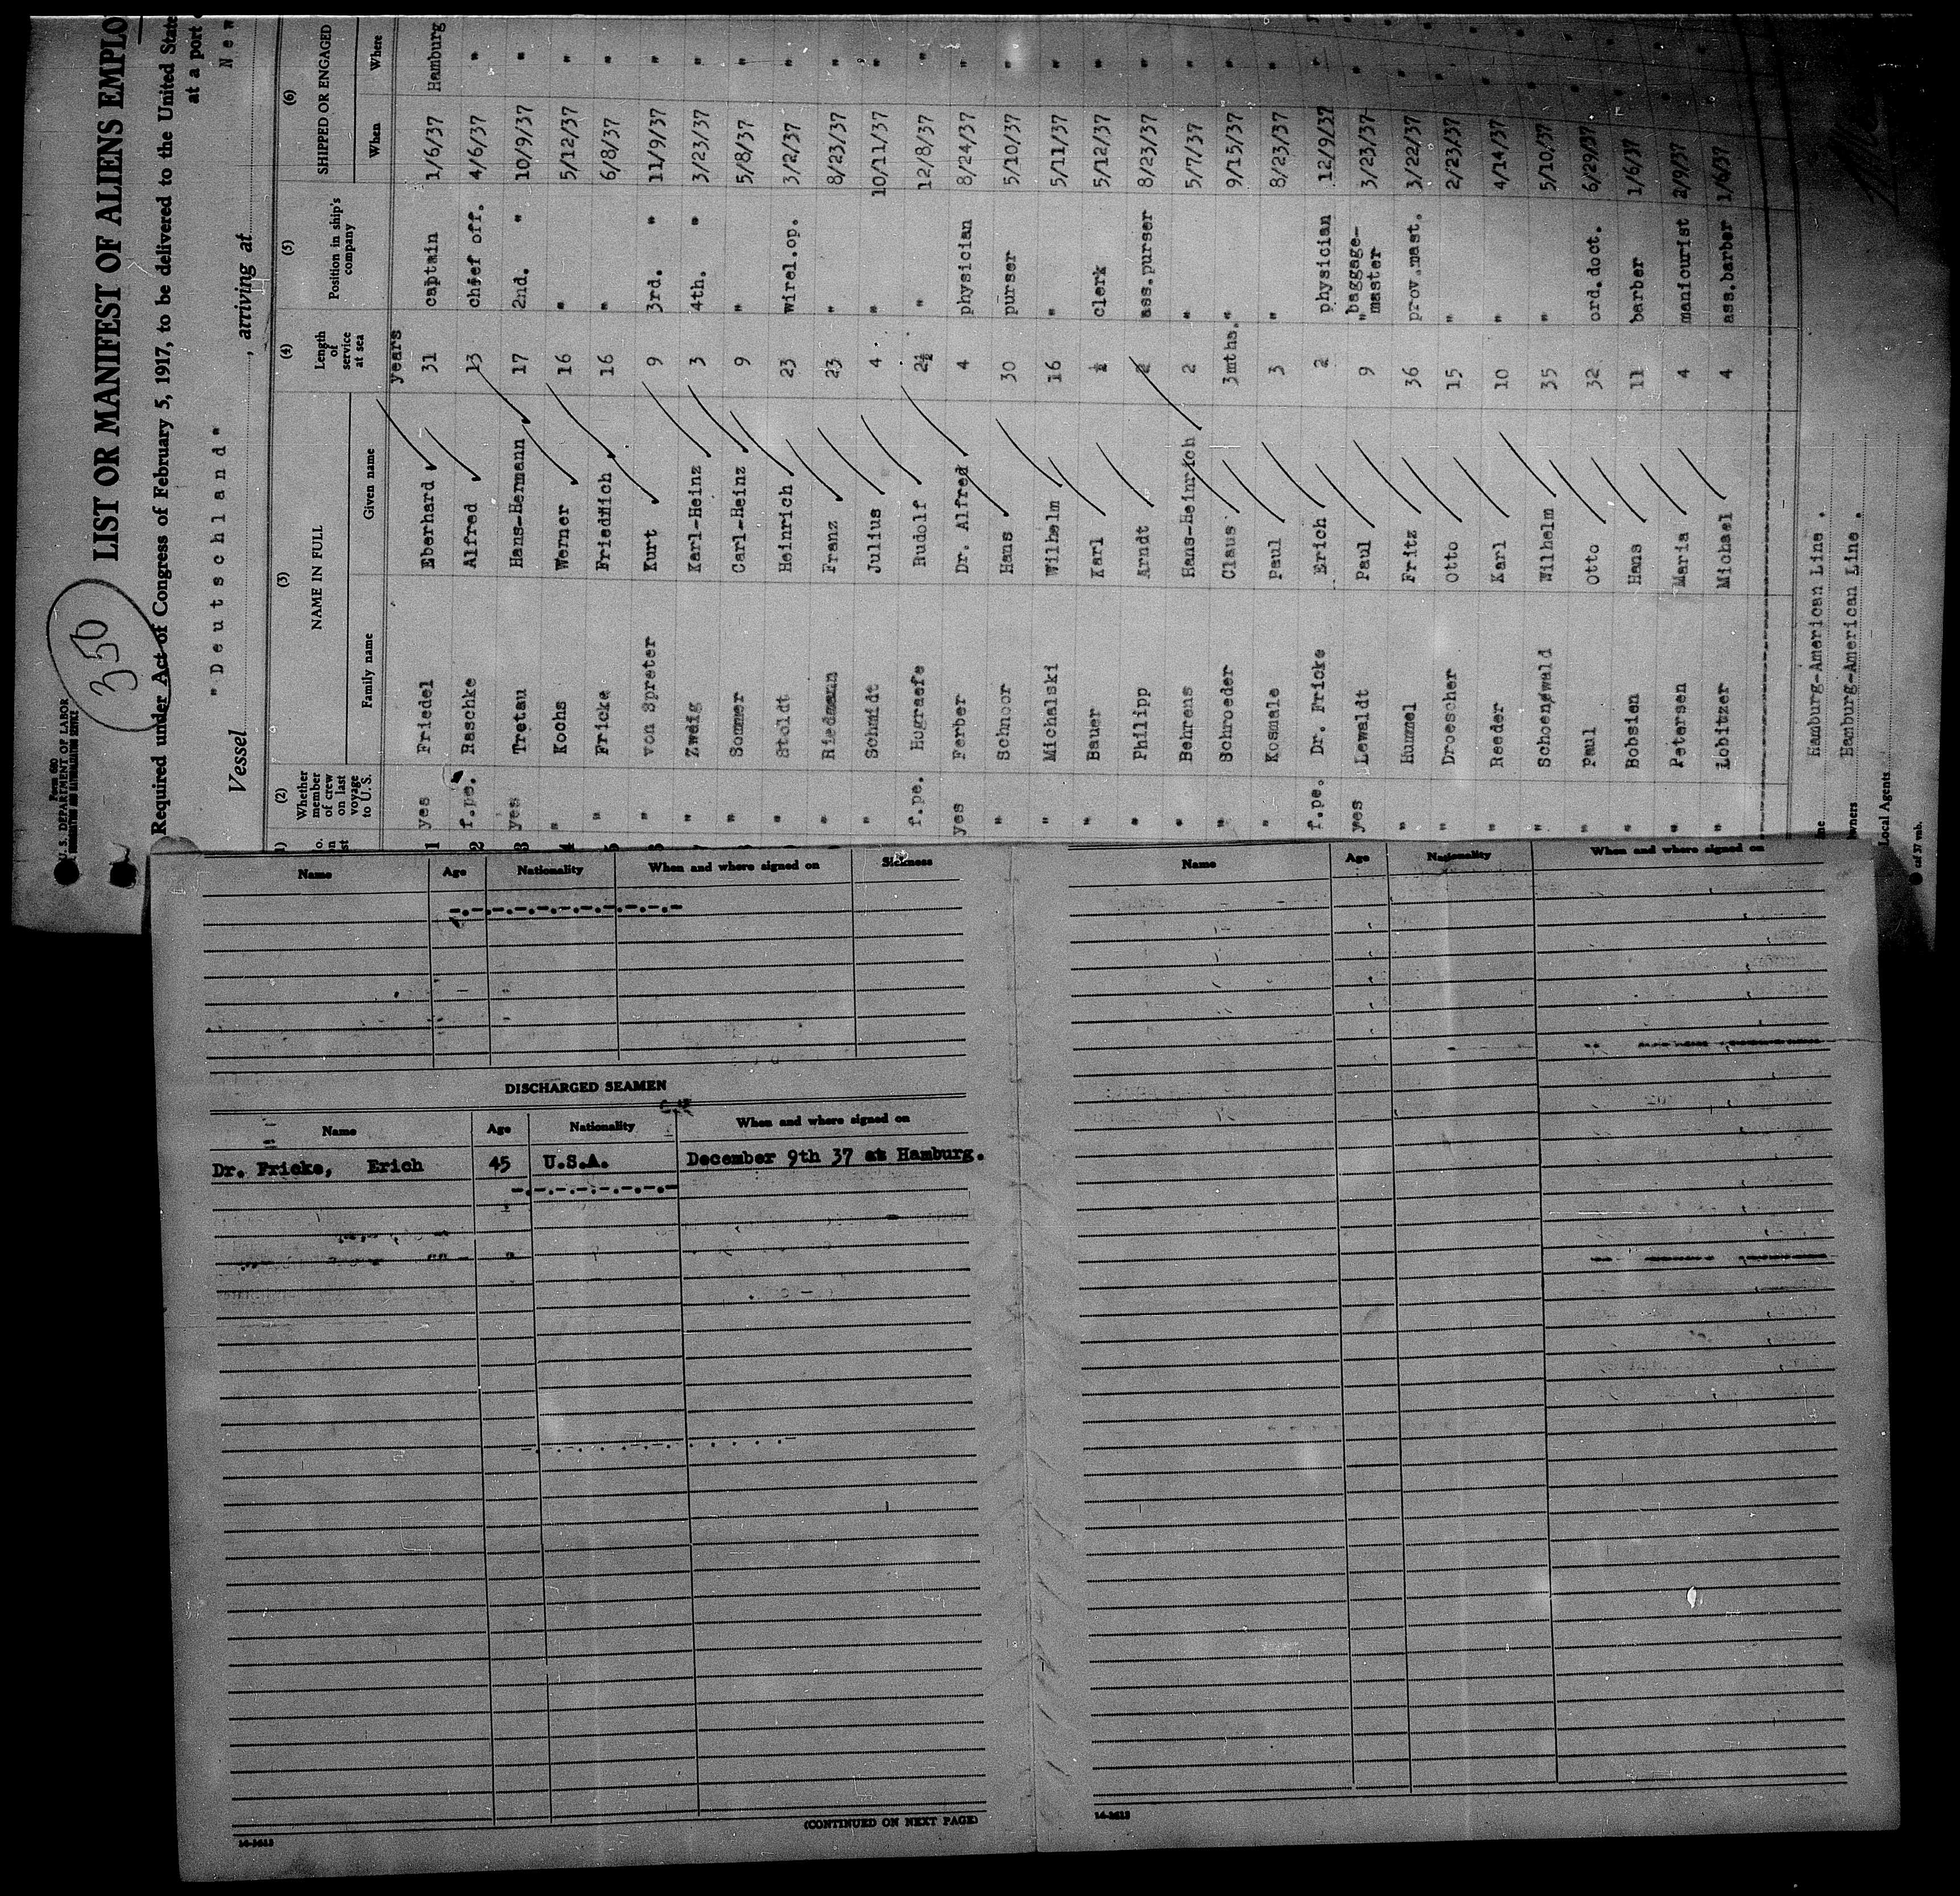 350
Form 680
U. S. DEPARTMENT OF LABOR
IMMIGRATION AND NATURALIZATION SERVICE
LIST OR MANIFEST OF ALIENS EMPLO
Required under Act of Congress of February 5, 1917, to be delivered to the United State
at a port
Vessel "Deutschland" , arriving at New
(2) (3) (4) (5) (6)
Whether member of crew on last voyage to U.S. NAME IN FULL Length of service at sea Position in ship's company SHIPPED OR ENGAGED
Family name Given name When Where
years
1 yes Friedel Eberhard 31 captain 1/6/37 Hamburg
2 f.pe. Raschke Alfred 13 chief off. 4/6/37 "
3 yes Tretau Hans-Hermann 17 2nd. " 10/9/37 "
4 " Kochs Werner 16 " 5/12/37 "
" Fricke Friedrich 16 " 6/8/37 "
" von Spreter Kurt 9 3rd. " 11/9/37 "
" Zwdig Karl-Heinz 3 4th. " 3/23/37 "
" Sommer Carl-Heinz 9 " 5/8/37 "
" Stoldt Heinrich 23 wirel.op. 3/2/37 "
" Riedmann Franz 23 " 8/23/37 "
" Schmidt Julius 4 " 10/11/37 "
f.pe. Hograefe Rudolf 2½ " 12/8/37 "
yes Ferber Dr. Alfred 4 physician 8/24/37 "
" Schnoor Hans 30 purser 5/10/37 "
" Michalski Wilhelm 16 " 5/11/37 "
" Bauer Karl ½ clerk 5/12/37 "
" Philipp Arndt 2 ass.purser 8/23/37 "
" Behrens Hans-Heinrich 2 " 5/7/37 "
" Schroeder Claus 3mths. " " 9/15/37 "
" Kosmale Paul 3 " 8/23/37 "
f.pe. Dr. Fricke Erich 2 physician 12/9/37 "
yes Lewaldt Paul 9 "baggage-master 3/23/37 "
" Hummel Fritz 36 prov.mast. 3/22/37 "
" Droescher Otto 15 " 2/23/37 "
" Reeder Karl 10 " 4/14/37 "
" Schoenewald Wilhelm 35 " 5/10/37 "
" Paul Otto 32 ord.doct. 6/29/37 "
" Bobsien Hans 11 barber 1/6/37 "
" Petersen Maria 4 manicurist 2/9/37 "
" Lobitzer Michael 4 ass.barber 1/6/37 "
Hamburg-American Line .
Hamburg-American Line .
Local Agents
Name Age Nationality When and where signed on Sickness
DISCHARGED SEAMEN
Name Age Nationality When and where signed on
Dr. Fricke, Erich 45 U.S.A. December 9th 37 at Hamburg.
(CONTINUED ON NEXT PAGE)
14-2613
Name Age Nationality When and where signed on
14-2613